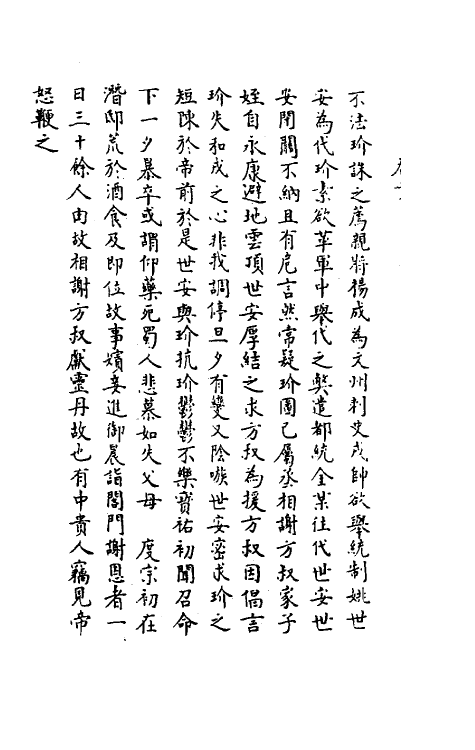 不法玠誅之薦親將楊成為文州刺史戎帥欲舉統制姚世
安為代玠素欲革軍中舉代之弊遣都統金某往代世安世
安閉關不納且有危言然常疑玠圖已屬丞相謝方叔家子
姪自永康避地雲頂世安厚結之求方叔為援方叔因倡言
玠失和戎之心非我調停旦夕有變又陰嗾世安密求玠之
短陳於帝前於是世安與玠抗玠鬱鬱不樂寶祐初聞召命
下一夕暴卒或謂仰藥死蜀人悲慕如失父母　度宗初在
潛邸荒於酒食及即位故事嬪妾進御晨詣閤門謝恩者一
日三十餘人由故相謝方叔獻靈丹故也有中貴人竊見帝
怒鞭之